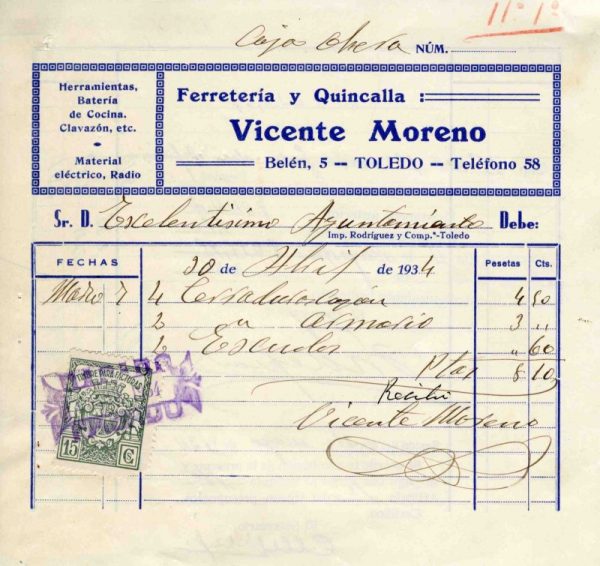 11º 1º
Caja Obera NÚM.
Herramientas,
Batería
de Cocina.
Clavazón, etc.
Material
eléctrico, Radio
Ferretería y Quincalla :
Vicente Moreno
Belén, 5 -- TOLEDO -- Teléfono 58
Sr. D. Excelentisimo Ayuntamiento Debe:
Imp. Rodríguez y Comp.ª-Toledo
FECHAS 20 de Abril de 1934 Pesetas Cts.
Marzo 7 4 Cerraduras cajón 4 50
2 " armario 3 "
2 Escudos " 60
Ptas 8 10
Recibi
Vicente Moreno
15 Cs